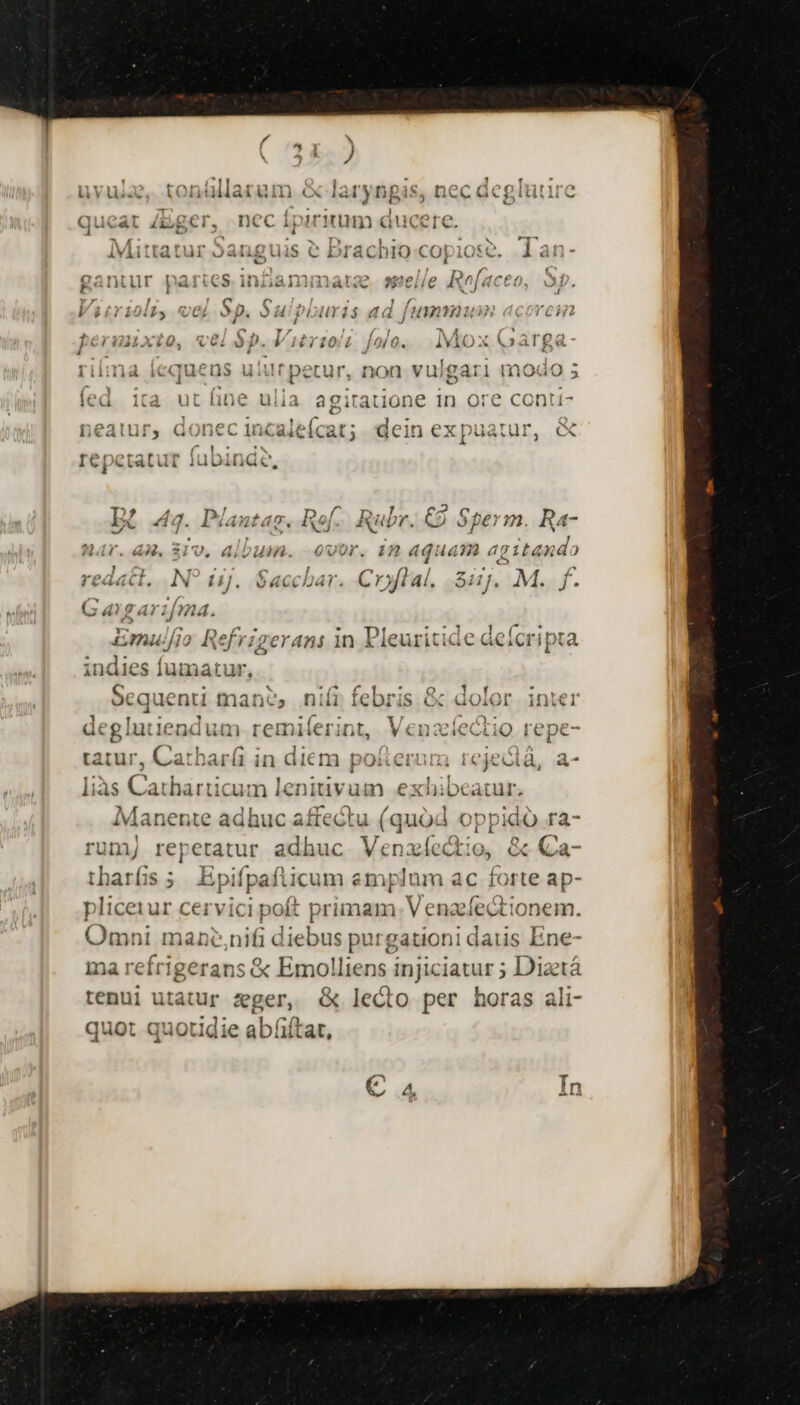 ( 31 )
uvulæ, tonſillarum & laryngis, nec deglutire
queat Æger, nec ſpiritum ducere.
Mittatur Sanguis è Brachio copioſè. Tan-
gantur partes inflammatæ melle Roſaceo, Sp.
Vitrioli, vel Sp. Sulphuris ad ſummum acorem
permixto, vel Sp. Vitrioli ſolo. Mox Garga-
riſma ſequens uſurpetur, non vulgari modo ;
ſed ita ut ſine ulla agitatione in ore conti-
neatur, donec incaleſcat; dein expuatur, &
repetatur ſubindè,
℞ Aq. Plantag. Roſ. Rubr. & Sperm. Ra-
nar. an. ℥iv. album. ovor. in aquam agitando
redact. N° iij. Sacchar. Cryſtal. ʒiij. M. f.
Gargariſma.
Emulſio Refrigerans in Pleuritide deſcripta
indies ſumatur,
Sequenti manè, niſi febris & dolor inter
deglutiendum remiſerint, Venæſectio repe-
tatur, Catharſi in diem poſterum rejectâ, a-
liàs Catharticum lenitivum exhibeatur.
Manente adhuc affectu (quòd oppidò ra-
rum) repetatur adhuc Venæſectio, & Ca-
tharſis ; Epiſpaſticum amplum ac forte ap-
plicetur cervici poſt primam Venæſectionem.
Omni manè, niſi diebus purgationi datis Ene-
ma refrigerans & Emolliens injiciatur ; Diætâ
tenui utatur æger, & lecto per horas ali-
quot quotidie abſiſtat,
C 4 In